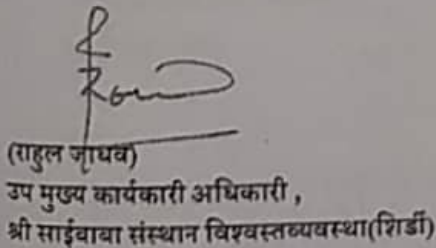 (राहुल जाधव)
उप मुख्य कार्यकारी अधिकारी ,
श्री साईबाबा संस्थान विश्वस्तव्यवस्था(शिर्डी)